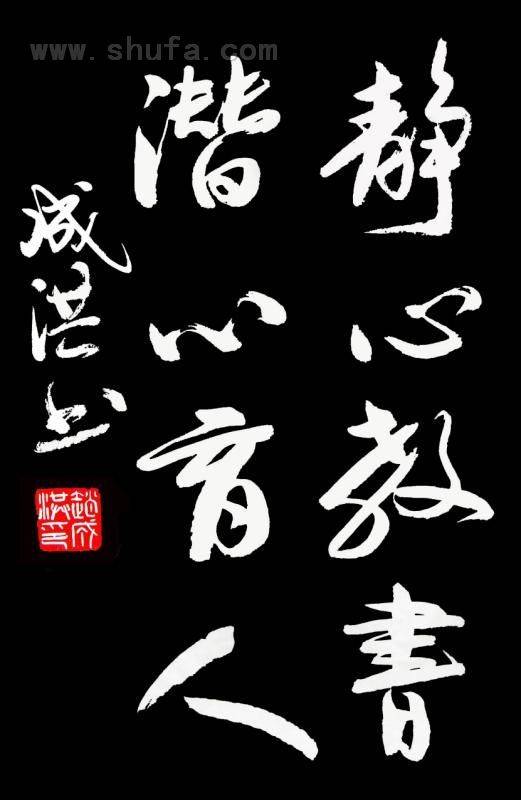 www.shufa.com
静心教書
潜心育人
成洪书
趙成洪印